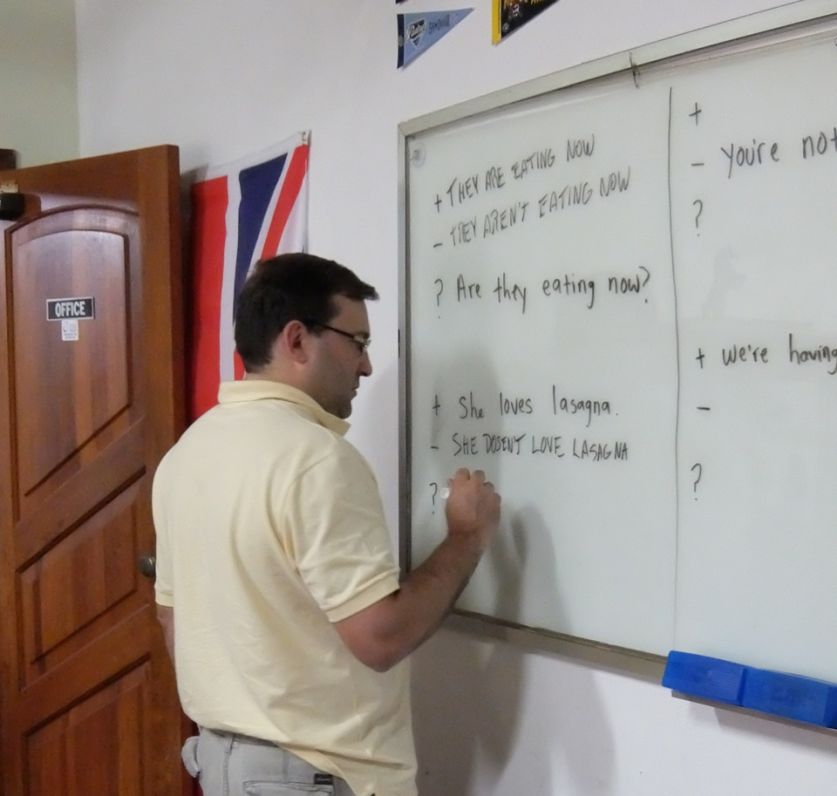 OFFICE
+ THEY ARE EATING NOW
- THEY AREN'T EATING NOW
? Are they eating now?
+ She loves lasagna.
- SHE DOSENT LOVE LASAGNA
?
+
- you're not
?
+ we're having
-
?